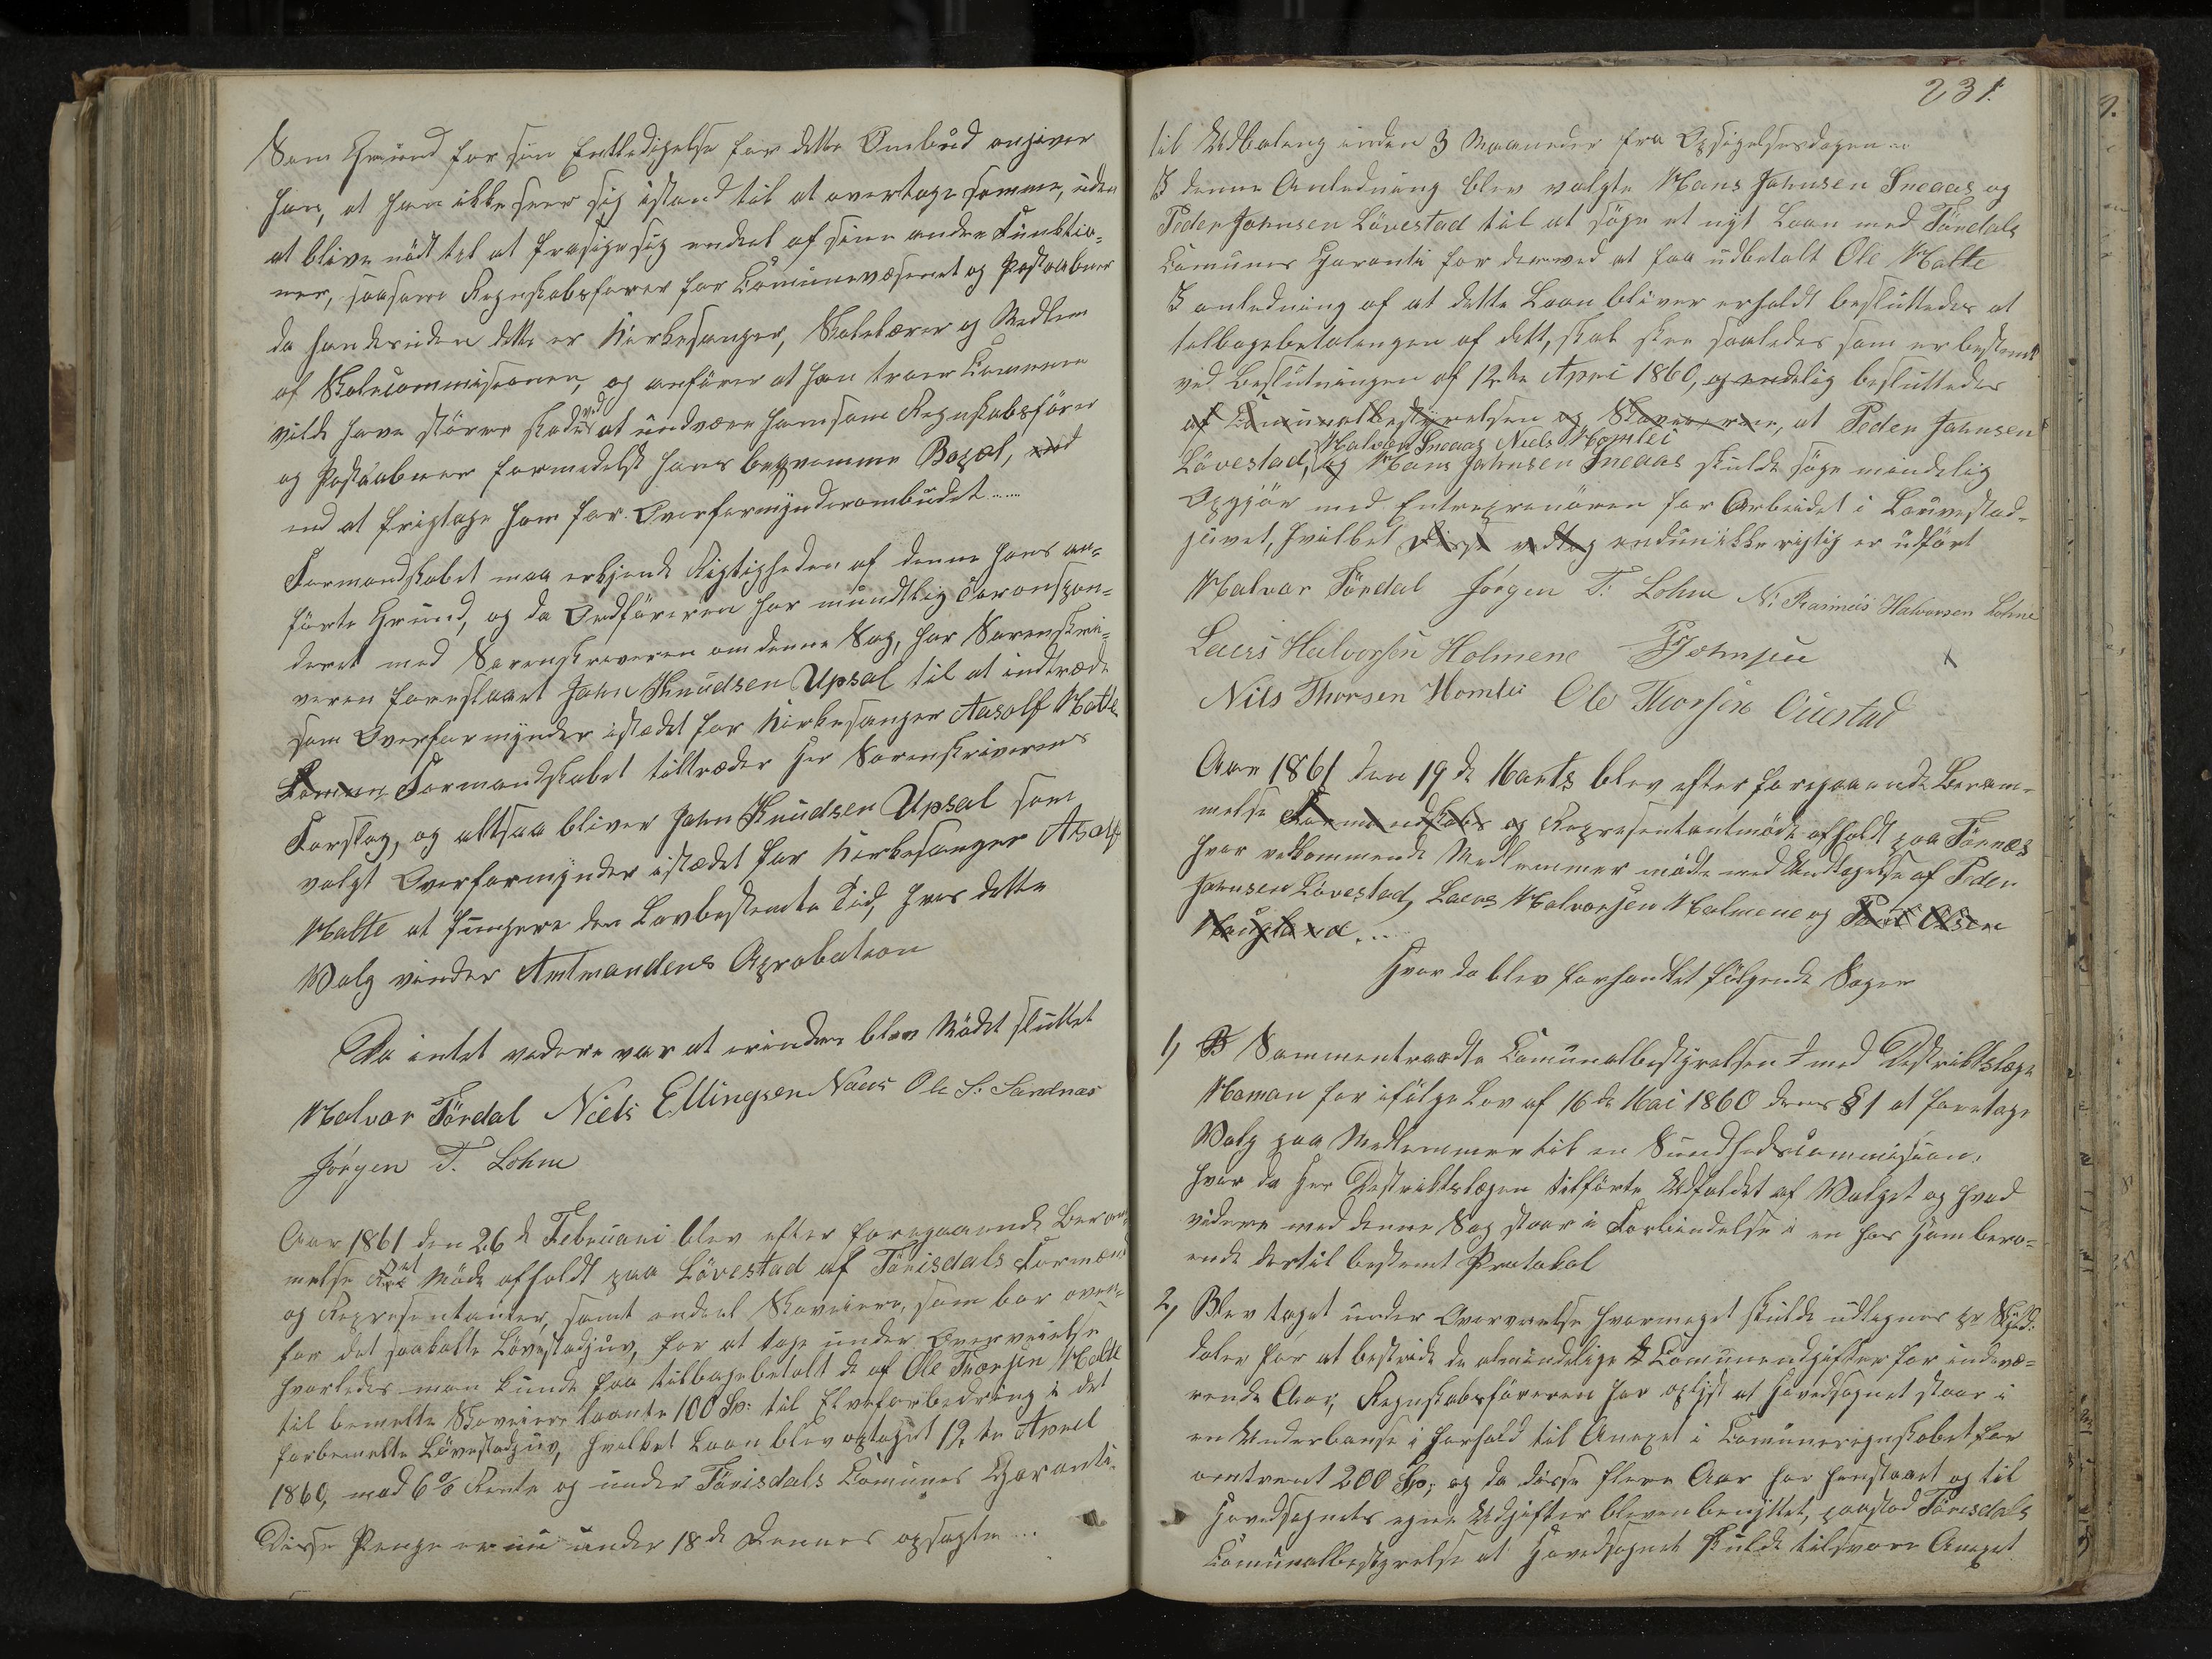 Som Grund for sin Entledigelse for dette Ombud angiver
han, at han ikke seer sig istand til at overtage samme, uden
at blive nödt til at frasige sig endeel af sine andre Funktio-
ner, saasom Regnskabsförer for Communevæsenet og Postaabner
da han desuden dette er Kirkesanger, Skolelærer og Medlem
af Skolecommisionen, og anförer at han troer Communen
vilde have större Skade ved at undvære ham som Regnskabsförer
og Postaabner formedelst hans beqvemme Bopæl, end
end at fritage ham for Overformynderombudet ......
Formandskabet maa erkjende Rigtigheden af denne hans an-
förte Grund, og da Ordföreren har mundtlig Coronspon-
deret med Sorenskriveren om denne Sag, har Sorenskri-
veren foreslaaet John Knudsen Upsal til at indtræde
som Overformynder istædet for Kirkesanger Aasolf Hatte
Formandskabet tiltræder Her Sorenskriverens
Forslag, og altsaa bliver John Knudsen Upsal som
valgt Overformynder istædet for Kirkesanger Asolf
Hatte at fungere den Lovbestemte Tid, hvis dette
Valg vinder Amtmandens Aprobation
Da intet videre var at erindre blev Mödet sluttet
Halvor Tördal Niels Ellingsen Naas Ole S. Sandnæs
Jørgen T. Lohne
Aar 1861 den 26de Februari blev efter foregaaende Beram-
melse Möde afholdt paa Lövestad af Törisdals Formænd
og Representanter, samt endeel Skoveiere, som bor oven-
for det saakalte Lövestadjuv, for at tage under Overveielse
hvorledes man kunde faa tilbagebetalt de af Ole Thorsen Hatte
til bemelte Skoveiere laante 100 Sp: til Elveforbedring i det
forbemelte Lövestadjuv, hvilket Laan blev optaget 12te April
1860, mod 6% Rente og under Törisdals Comunes Garanti.
Disse Penge er nu under 18de Dennes opsagte ...
231.
til Udbetaling inden 3 Maaneder fra Opsigelsesdagen ...
I denne Anledning blev valgte Hans Johnsen Sneaas og
Peder Johnsen Lövestad til at söge et nyt Laan med Tördals
Comunes Garanti for derved at faa udbetalt Ole Hatte
I anledning af at dette Laan bliver erholdt besluttedes at
tilbagebetalingen af dett, skal skee saaledes som er bestemt
ved Beslutningen af 12te April 1860, og endelig besluttedes
af Comunalbestyrelsen og Skoveierne, at Peder Johnsen
Halvor Sneaas Niels Homlei
Lövestad, og Hans Johnsen Sneaas skulde söge mindelig
Opgjör med Entreprenören for Arbeidet i Louvestad-
juvet, hvilket endnu ikke rigtig er udfört
Halvor Tördal Jørgen T. Lohne N: Rasmus Halvorsen Lohne
Laers Halvorsen Holmene PJohnsen
Nils Thorsen Homlei Ole Thorsen Ouestad
Aar 1861 den 19de Marts blev efter foregaaende Beram-
melse Formandskabs og Representantmöde afholdt paa Tönnes
hvor vedkommende Medlemmer mödte med Undtagelse af Peder
Johnsen Lövestad, Laers Halvorsen Holmene og Olsen
Haugland ...
Hvor da blev forhandlet fölgende Sager
1, Sammentraadte Comunalbestyrelsen med Distriktslæge
Homan for ifölge Lov af 16de Mai 1860 dens § 1 at foretage
Valg paa Medlemmer til en Sundhedscommision,
hvor da Her Distriktslægen tilförte Udfaldet af Valget og hvad
videre med denne Sag staar i Forbindelse i en hos Ham bero-
ende dertil bestemt Protokol
2, Blev taget under Overveielse hvormeget skulde udlignes pr Skyld-
daler for at bestride de almindelige Comuneudgifter for indevæ-
rende Aar, Regnskabsföreren har oplyst at Hovedsognet staar i
en Underbanse i forhold til Anexet i Comuneregnskabet for
omtrent 200 Sp; og da disse flere Aar har henstaaet og til
Hovedsognets egne Udgifter bleven benyttet, paastod Törisdals
Comunalbestyrelse at Hovedsognet skulde tilsvare Anexet